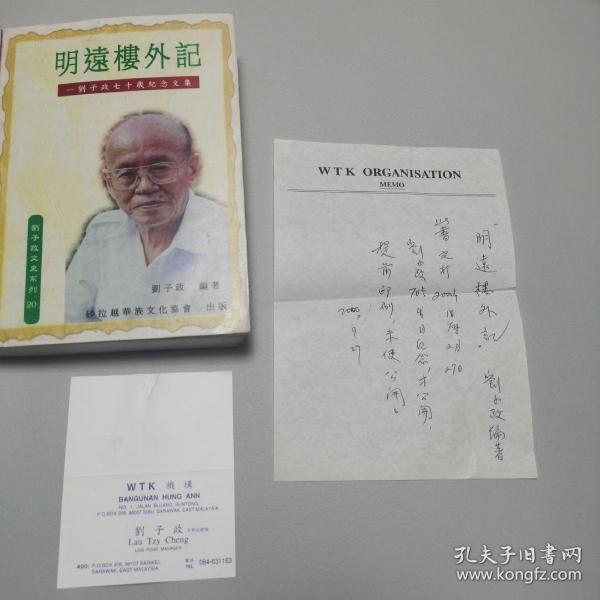 明遠樓外記
—劉子政七十歲紀念文集
劉子政文史系列
20
劉子政 編著
砂拉越華族文化協會 出版
WTK ORGANISATION
MEMO
"明遠樓外記" 劉子政編著
此書定於2001
劉子政
生日紀念,才公開,
提前印刷,未便公開。
2000,9,27
WTK 機構
BANGUNAN HUNG ANN
NO. 1, JALAN BUJANG SUNTONG,
P.O.BOX 206, 96007 SIBU, SARAWAK, EAST MALAYSIA.
劉子政
Lau Tzy Cheng
LOG POND MANAGER
ADD: P.O.BOX 206, 96107 SARIKEI,
SARAWAK, EAST MALAYSIA.
TEL 084-631163
孔夫子旧书网
www.kongfz.com